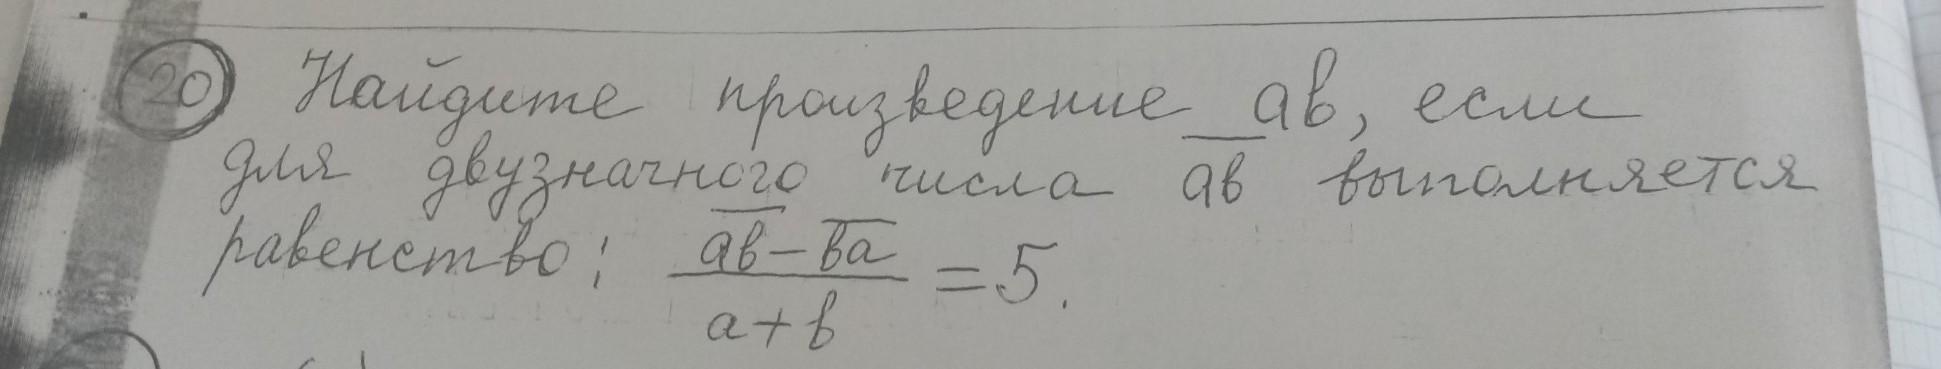 20 Найдите произведение ab, если
для двузначного числа \overline{ab} выполняется
равенство: \frac{\overline{ab} - \overline{ba}}{a+b} = 5.